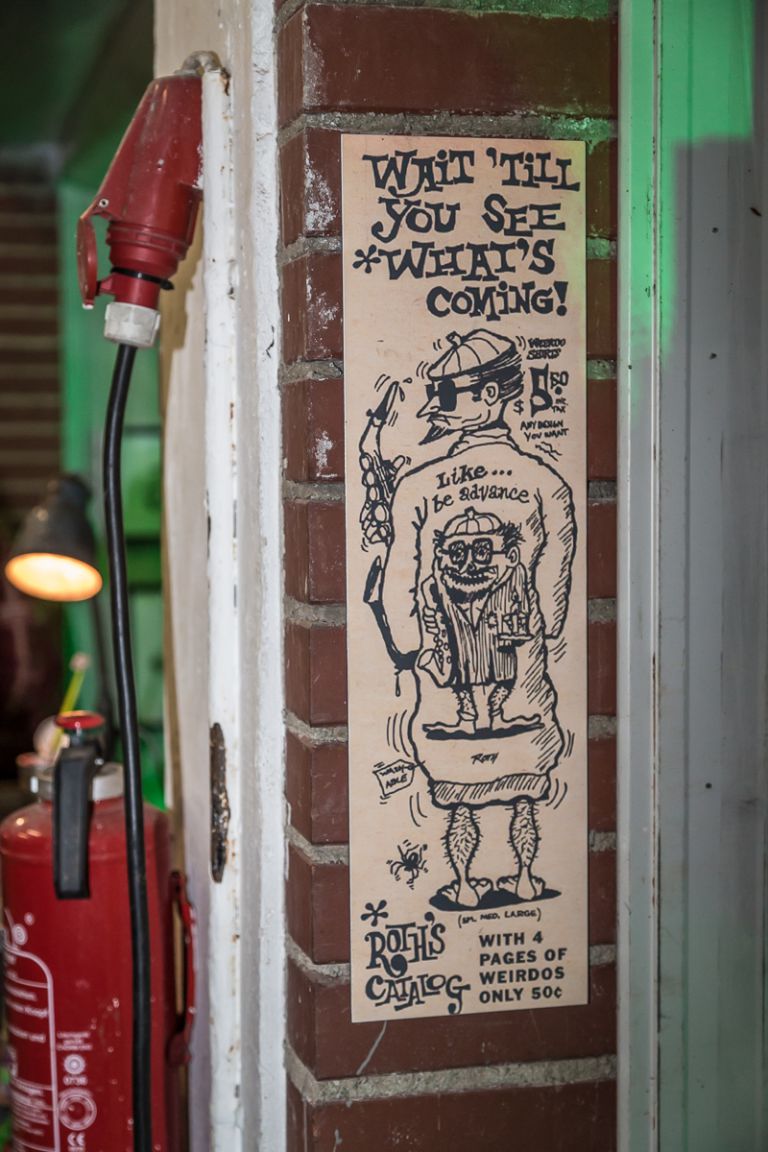 WAIT 'TILL
YOU SEE
*WHAT'S
COMING!
WEIRDO
SHIRTS
$ 5.50
INC
TAX
ANY DESIGN
YOU WANT
Like...
be advance
ROTH
WASH-
ABLE
(SM. MED. LARGE)
*
ROTH'S
CATALOG
WITH 4
PAGES OF
WEIRDOS
ONLY 50¢
CE